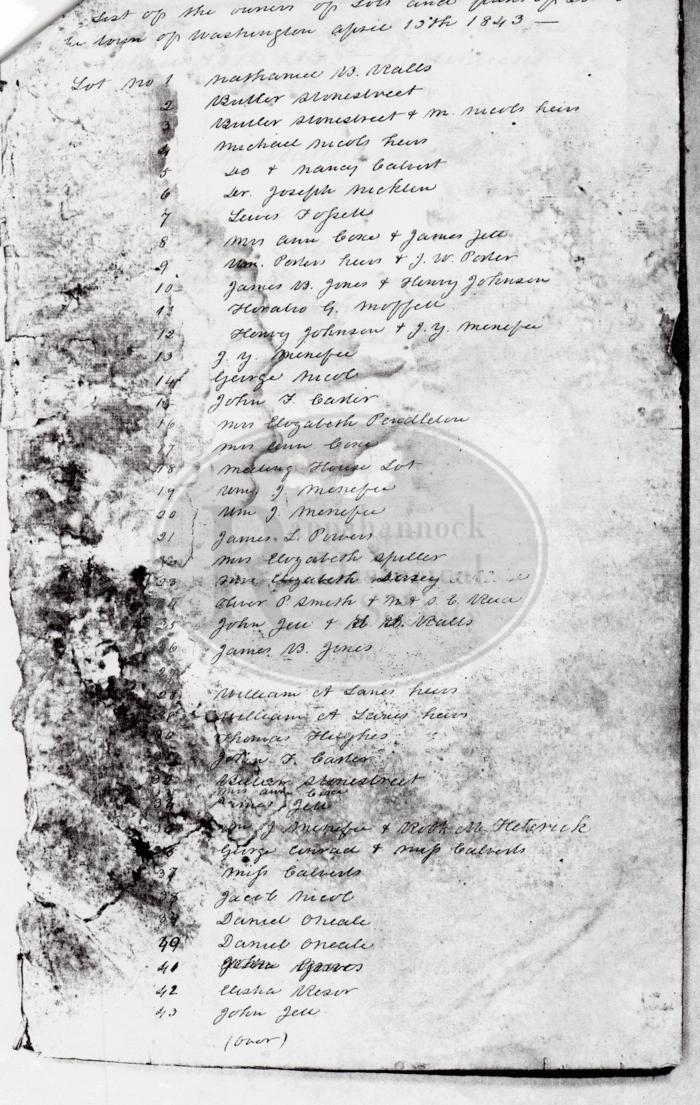 List of the owners of Lots and parts of
the town of Washington April 13th 1843 —
Lot No 1 Nathaniel B. Ralls
2 Butler Stonestreet
3 Butler Stonestreet & M. Nicols heirs
4 Michael Nicols heirs
5 Do & Nancy Calvert
6 Dr. Joseph Nicklin
7 Lewis
8 Mrs Ann Coxe & James Jett
9 Wm. Porters heirs & J. W. Porter
10 James B. Jones & Henry Johnson
11 Horatio G. Moffett
12 Henry Johnson & J. Y. Menefee
13 J. Y. Menefee
14 George Nicol
15 John F Carter
16 Mrs Elizabeth Pendleton
17 Mrs Ann Coxe
18 Meeting House Lot
19 Wm. J. Menefee
20 Wm J. Menefee
21 James L. Powers
22 Mrs Elizabeth Spiller
23 Mrs Elizabeth Dorsey
Oliver P. Smith & M & S. C.
25 John Jett & Ralls
26 James B. Jones
28 William A Lanes heirs
William A Lanes heirs
30 Thomas Hughes
John F. Carter
32 Butler Stonestreet
Mrs Ann Coxe
34 James Jett
35 Wm J Menefee & Robt M. Heterick
36 George Conrad & Miss Calverts
37 Miss Calverts
38 Jacob Nicol
39 Daniel Oneale
40 Daniel Oneale
41 John Graves
42 Elisha Resor
43 John Jett
(Over)
Rappahannock